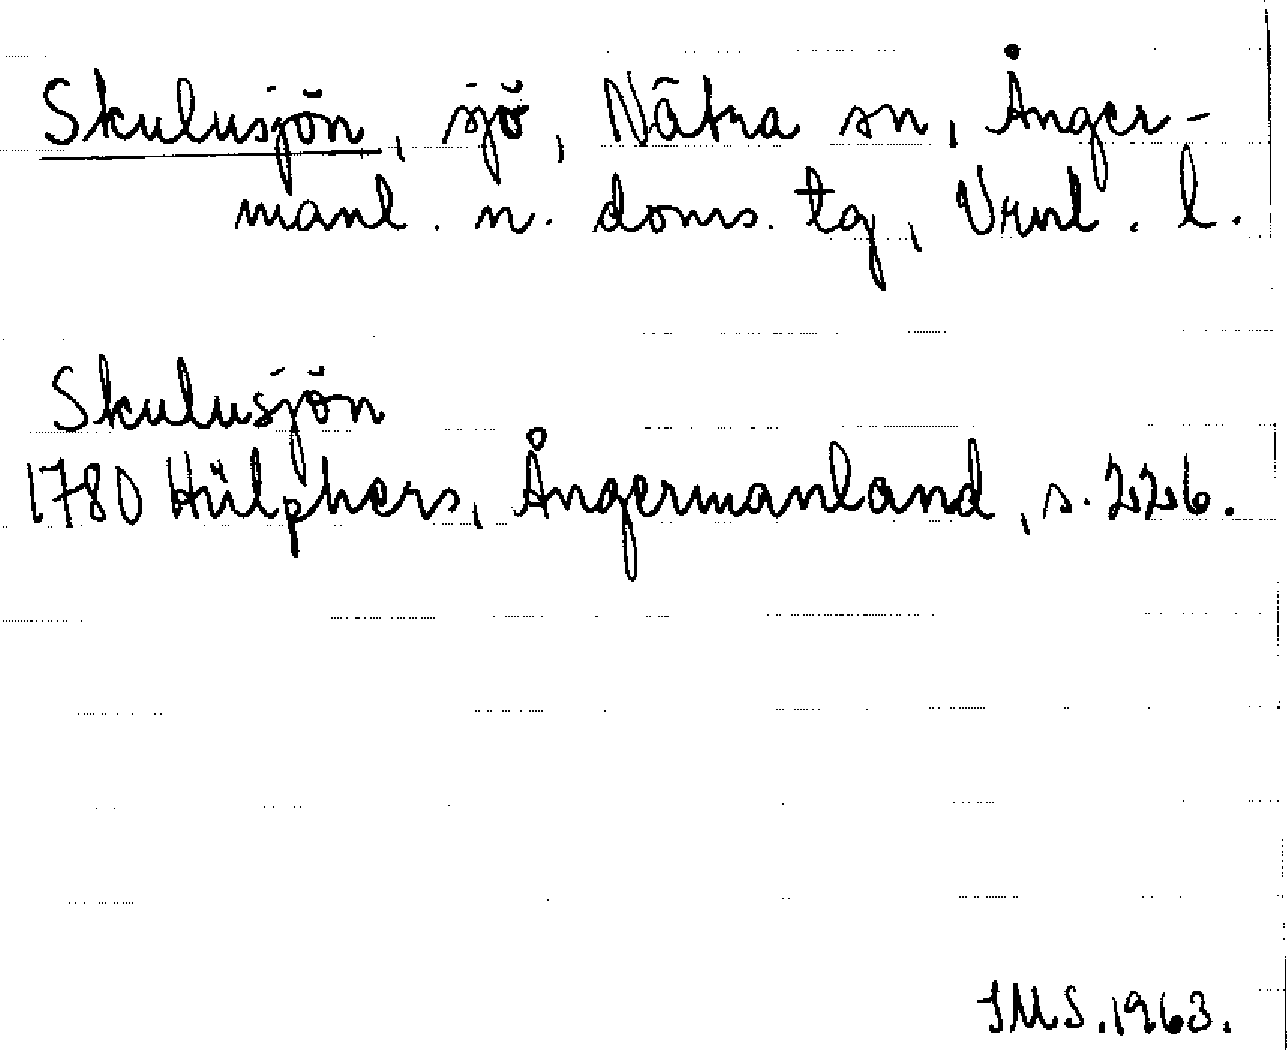 Skulusjön, sjö, Nätra sn, Ånger-
manl. n. doms. tg, Vrnl. l.
Skulusjön
1780 Hülphers, Ångermanland, s. 226.
IMS. 1963.